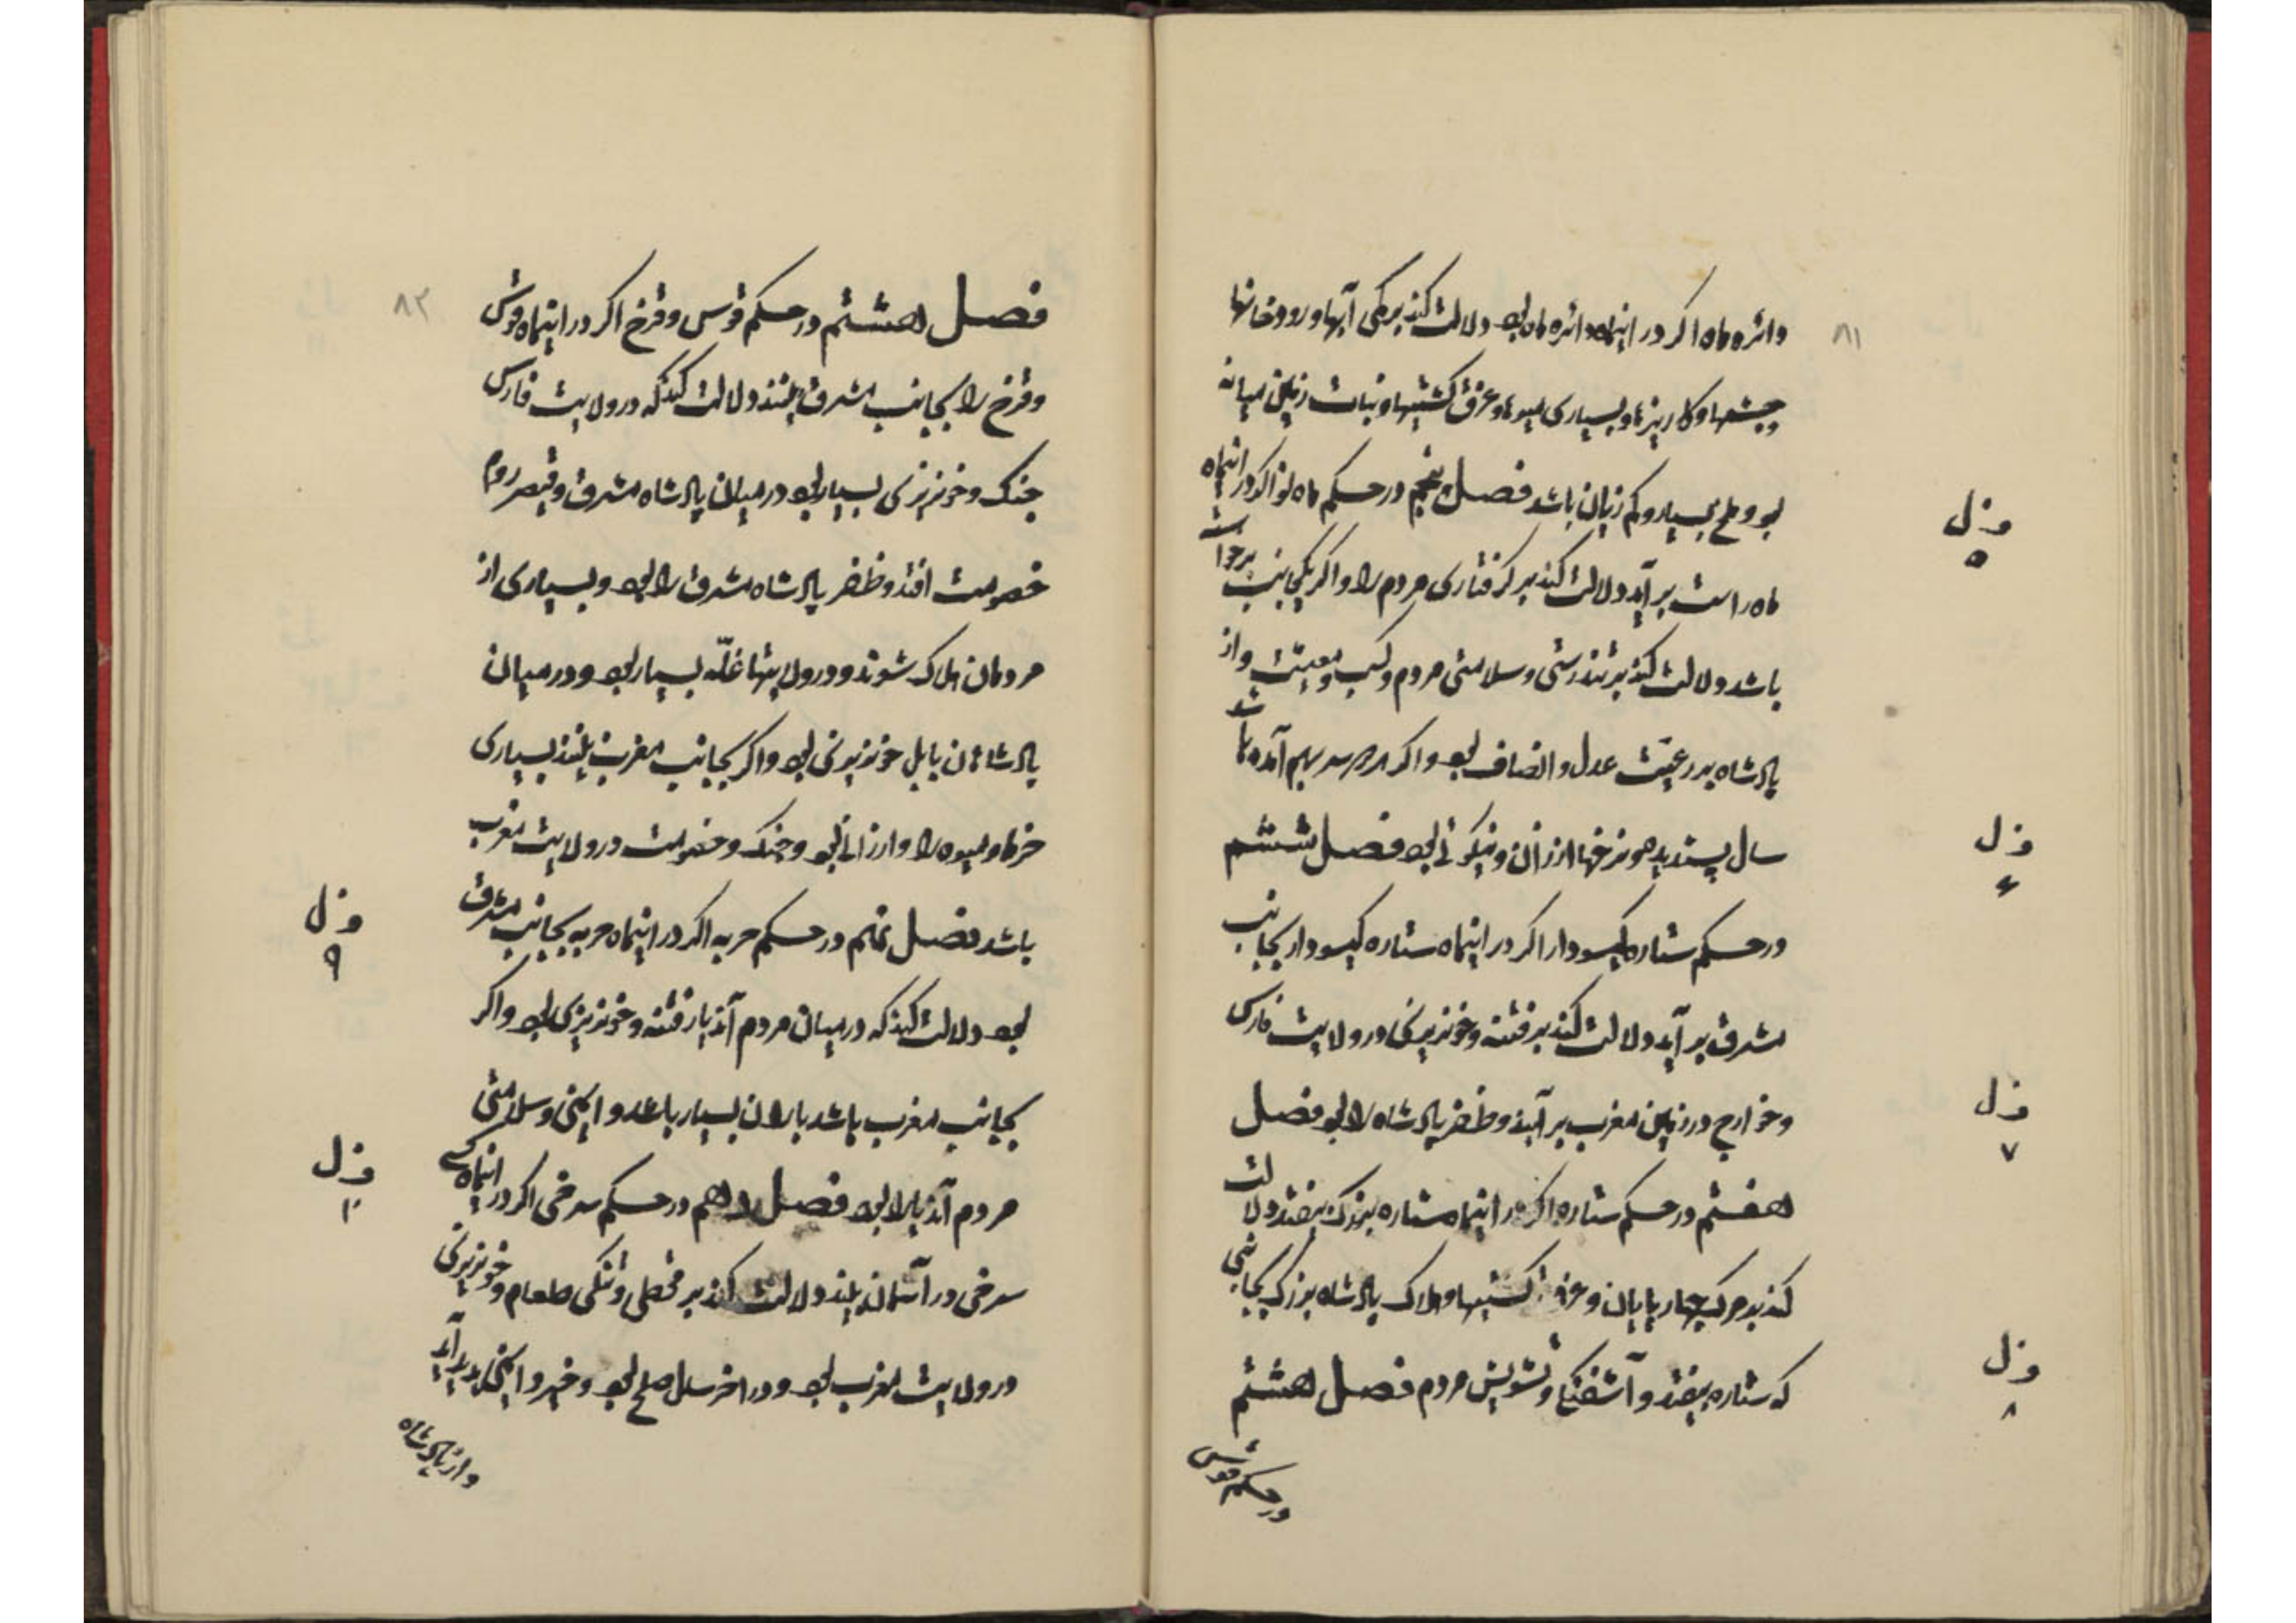 ۸۱
دائره ماه اکر در اینماه دائره ماه بود دلالت کند بر کمی آبها و رودخانها
و چشمها و کاریزها و بسیاری میوها و غرق کشتیها و نبات زمین میانه
بود و ملخ بسیار و کم زیان باشد فصل پنجم در حکم ماه نو اکر در اینماه
ماه راست بر آید دلالت کند بر کرفتاری مردم را و اکر بیکجانب برخواسته
باشد دلالت کند بر تندرستی و سلامتی مردم و کسب و معیشت و از
پادشاه بر رعیت عدل و انصاف بود و اکر هر دو سر بهم آمده باشد
سال پسندیده و نرخها ارزان و نیکوئی بود فصل ششم
در حکم ستاره کیسودار اکر در اینماه ستاره کیسودار بجانب
مشرق بر آید دلالت کند بر فتنه و خونریزی در ولایت فارس
و خوارج در زمین مغرب بر آیند و ظفر پادشاه را بود فصل
هفتم در حکم ستاره اکر در اینماه ستاره بزرک بیفتد دلالت
کند بر مرک چهارپایان و غرق کشتیها و هلاک پادشاه بزرک بجانبی
که ستاره بیفتد و آشفتکی و تشویش مردم فصل هشتم
در حکم قوس
فصل
۵
فصل
۶
فصل
۷
فصل
۸
۸۲
فصل هشتم در حکم قوس و قزخ اکر در اینماه قوس
و قزخ را بجانب مشرق بینند دلالت کند که در ولایت فارس
جنک و خونریزی بسیار بود در میان پادشاه مشرق و قیصر روم
خصومت افتد و ظفر پادشاه مشرق را بود و بسیاری از
مردمان هلاک شوند و در ولایتها غلّه بسیار بود و در میان
پادشاهان بابل خونریزی بود و اکر بجانب مغرب بینند بسیاری
خرما و میوه را و ارزانی بود و جنک و خصومت در ولایت مغرب
باشد فصل نهم در حکم حربه اکر در اینماه حربه بجانب مشرق
بود دلالت کند که در میان مردم آندیار فتنه و خونریزی بود و اکر
بجانب مغرب باشد باران بسیار باشد و ایمنی و سلامتی
مردم آندیار را بود فصل دهم در حکم سرخی اکر در اینماه کی
سرخی در آسمان بیند دلالت کند بر قحطی و تنکی طعام و خونریزی
در ولایت مغرب بود و در اخر سال صلح بود و خیر و ایمنی پدید آید
و از پادشاه
فصل
۹
فصل
۱۰